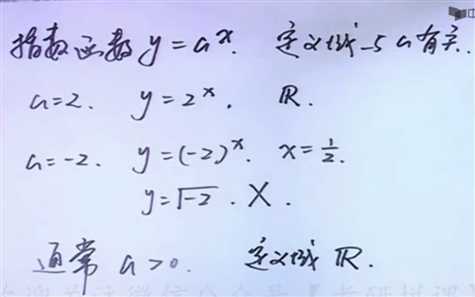 指数函数 y = aˣ. 定义域与a有关.
a=2. y=2ˣ. ℝ.
a=-2. y=(-2)ˣ. x=½.
y=√-2. ×.
通常 a>0. 定义域 ℝ.